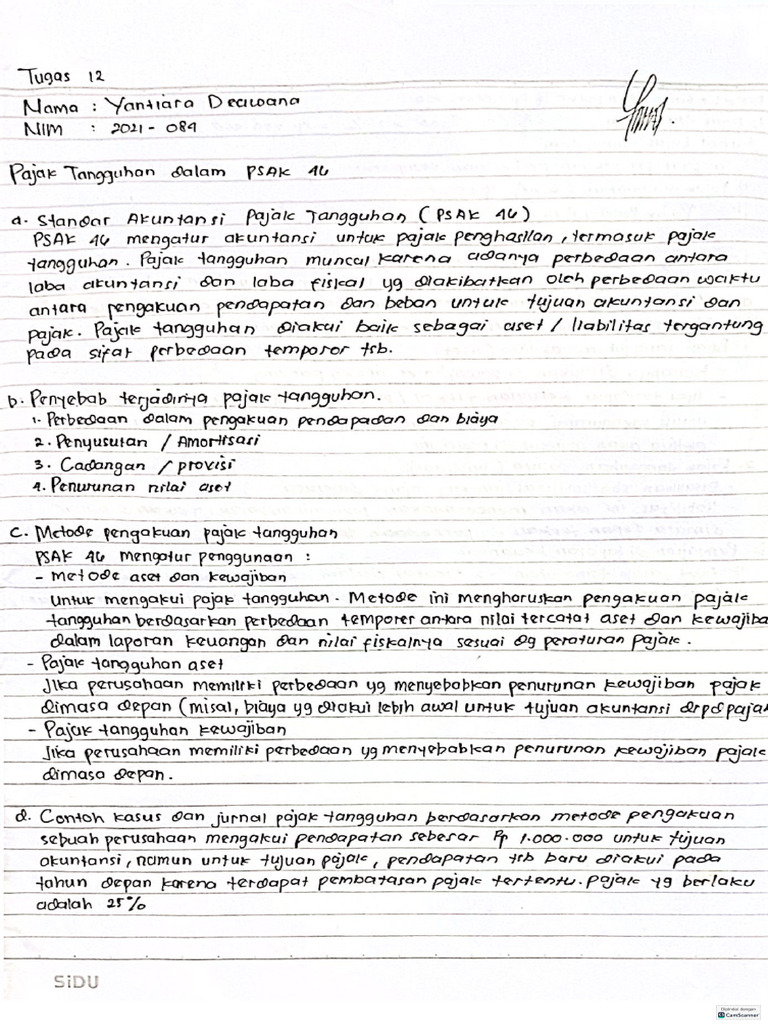 Tugas 12
Nama : Yantiara Deciwana
NIM : 2021 - 084
Pajak Tangguhan dalam PSAK 46
a. Standar Akuntansi Pajak Tangguhan (PSAK 46)
PSAK 46 mengatur akuntansi untuk pajak penghasilan, termasuk pajak
tangguhan. Pajak tangguhan muncul karena adanya perbedaan antara
laba akuntansi dan laba fiskal yg diakibatkan oleh perbedaan waktu
antara pengakuan pendapatan dan beban untuk tujuan akuntansi dan
pajak. Pajak tangguhan diakui baik sebagai aset / liabilitas tergantung
pada sifat perbedaan temporer tsb.
b. Penyebab terjadinya pajak tangguhan.
1. Perbedaan dalam pengakuan pendapadan dan biaya
2. Penyusutan / Amortisasi
3. Cadangan / provisi
4. Penurunan nilai aset
c. Metode pengakuan pajak tangguhan
PSAK 46 Mengatur penggunaan :
- Metode aset dan kewajiban
Untuk mengakui pajak tangguhan. Metode ini mengharuskan pengakuan pajak
tangguhan berdasarkan perbedaan temporer antara nilai tercatat aset dan kewajiba
dalam laporan keuangan dan nilai fiskalnya sesuai dg peraturan pajak.
- Pajak tangguhan aset
Jika perusahaan memiliki perbedaan yg menyebabkan penurunan kewajiban pajak
dimasa depan (misal, biaya yg diakui lebih awal untuk tujuan akuntansi drpd pajak
- Pajak tangguhan kewajiban
Jika perusahaan memiliki perbedaan yg menyebabkan penurunan kewajiban pajak
dimasa depan.
d. Contoh kasus dan jurnal pajak tangguhan berdasarkan metode pengakuan
sebuah perusahaan mengakui pendapatan sebesar Rp 1.000.000 untuk tujuan
akuntansi, namun untuk tujuan pajak, pendapatan tsb baru diakui pada
tahun depan karena terdapat pembatasan pajak tertentu. pajak yg berlaku
adalah 25%
SiDU
Dipindai dengan
CamScanner